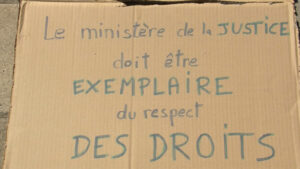 Le ministère de la JUSTICE
doit être
EXEMPLAIRE
du respect
DES DROITS